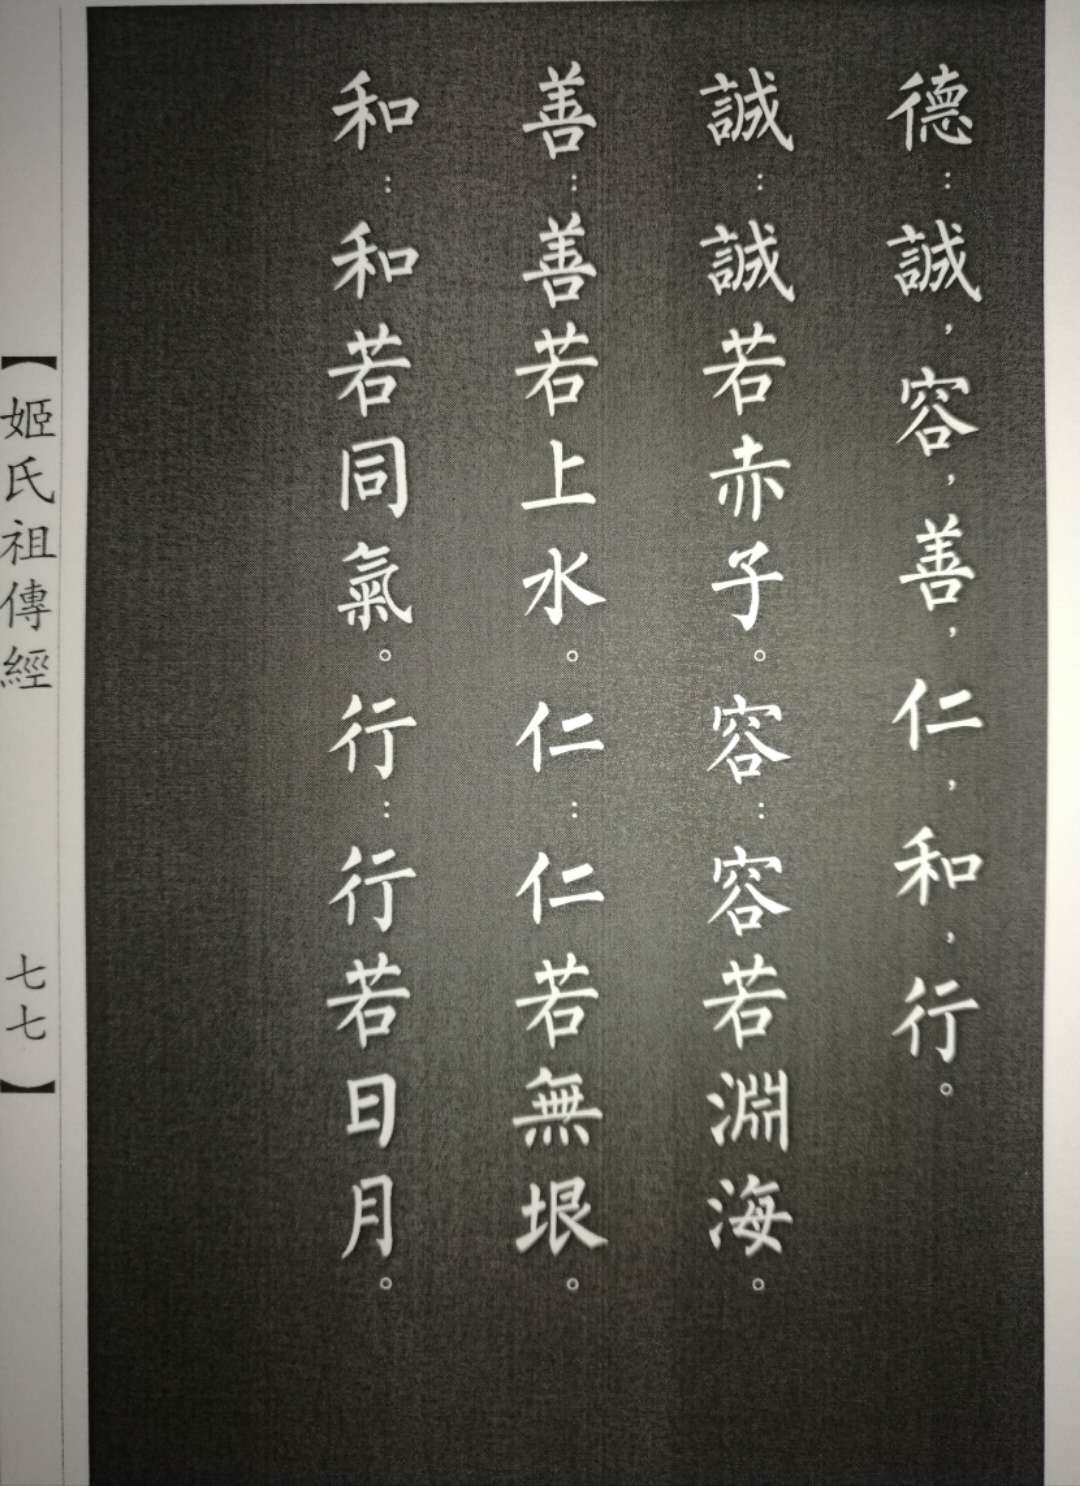 德：誠，容，善，仁，和，行。
誠：誠若赤子。容：容若淵海。
善：善若上水。仁：仁若無垠。
和：和若同氣。行：行若日月。
【姬氏祖傳經 七七】